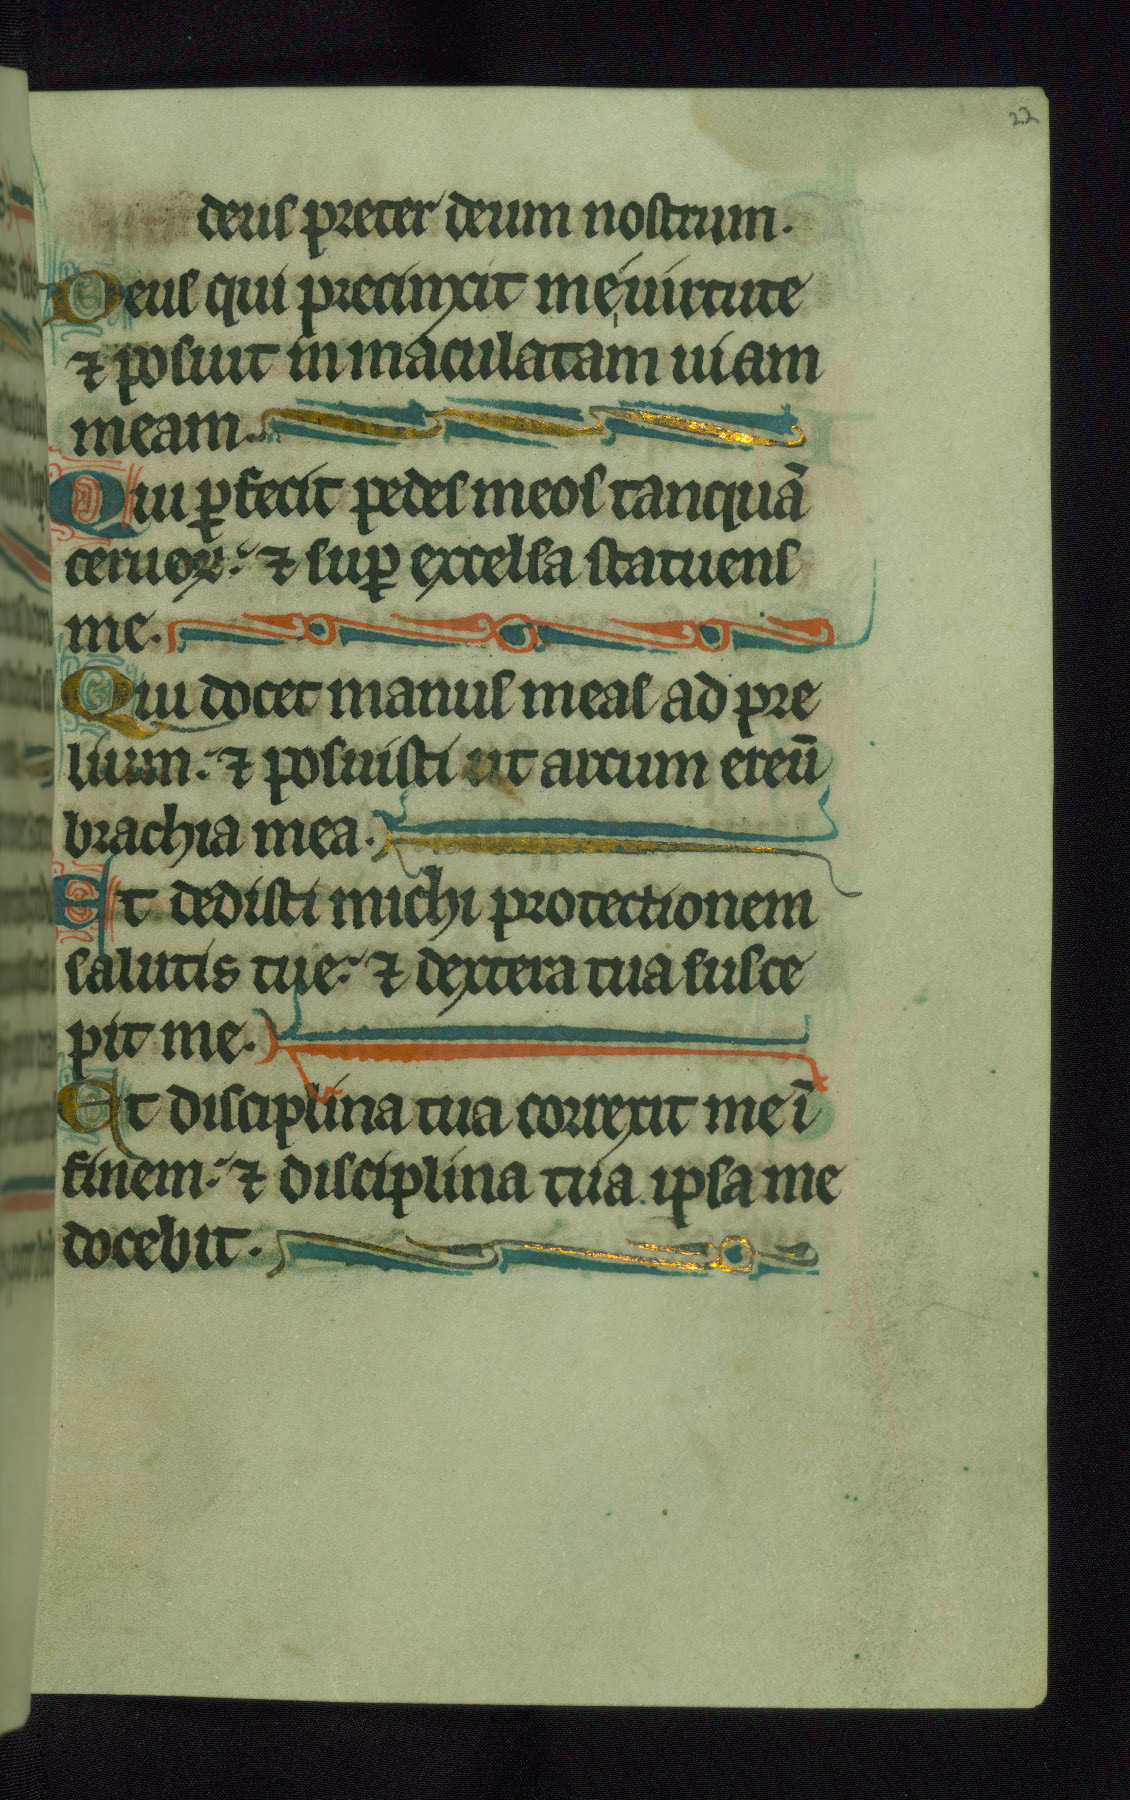 22
deus preter deum nostrum.
Deus qui precinxit me uirtute
⁊ posuit inmaculatam uiam
meam.
Qui ꝑfecit pedes meos tanquā
ceruoꝝ: ⁊ suꝑ excelsa statuens
me.
Qui docet manus meas ad pre
lium: ⁊ posuisti ut arcum ereū
brachia mea.
Et dedisti michi protectionem
salutis tue: ⁊ dextera tua susce
pit me.
Et disciplina tua correxit me ī
finem: ⁊ disciplina tua ipsa me
docebit.